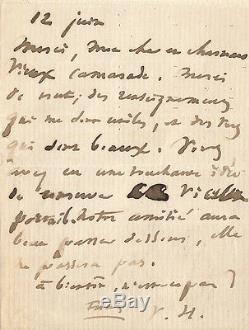 12 juin
Merci, mon cher et charmant
vieux camarade. Merci
de tout; des renseignements
qui me sont utiles, et des vers
qui sont beaux. Vous
avez eu une idée
de
portail. Notre amitié aura
beau passer dessous, elle
ne passera pas.
à bientôt, n'est-ce pas?
V. H.